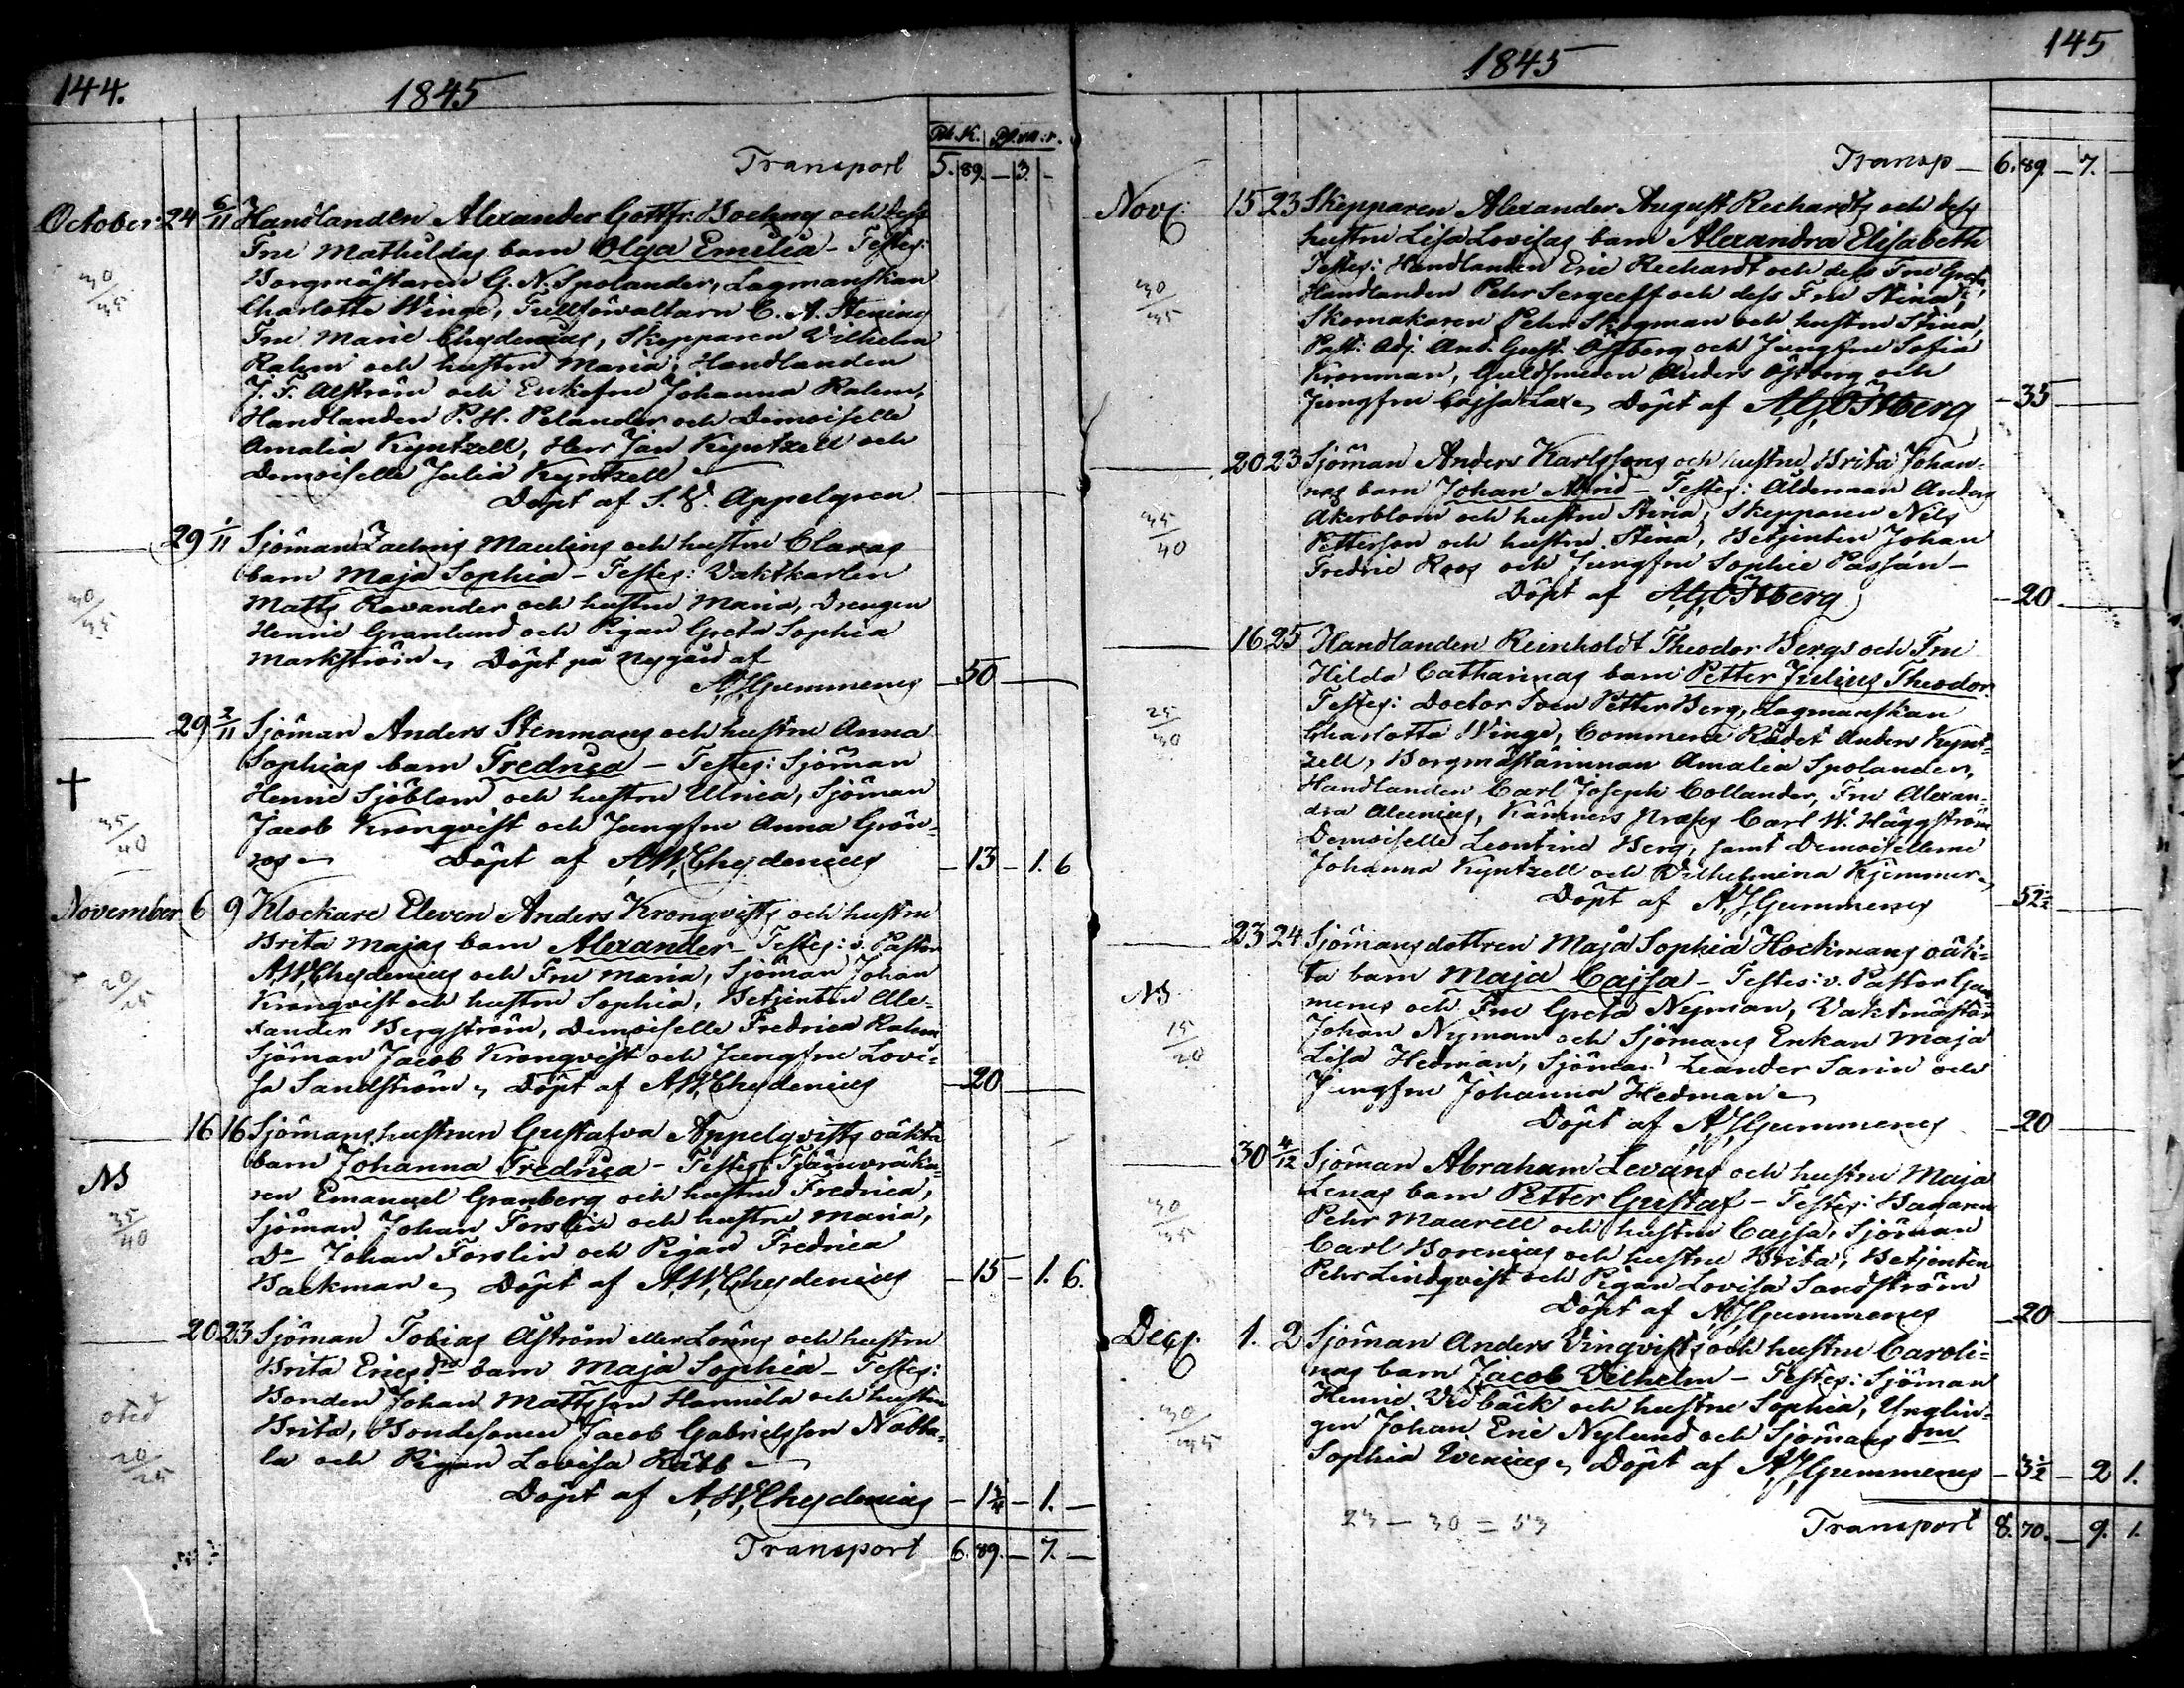 144.
1845
Transport 5. 89. — 3. —
October 24 6/11 Handlanden Alexander Gottfr: och dess
30/35
Fru Mathildas barn Olga Emelia – Testes:
Borgmästaren G. N. Spolander, Lagmanskan
Charlotte Winge, Tullförvaltarn C. A. Stenius
Fru Marie Chydenius, Skepparen Vilhelm
Rahm och hustru Maria, Handlanden
J. F. Alström och Enkefru Johanna Rahm,
Handlanden P. H. Pelander och Demoiselle
Amalia Kyntzell, Herr Jan Kyntzell och
Demoiselle Julia Kyntzell
Döpt af Appelgren
29 1/11 Sjöman Zachris Maulins och hustru Claras
30/35
barn Maja Sophia – Testes: Vaktkarlen
Matts Ravander och hustru Maria, Drengen
Henric Granlund och Pigan Greta Sophia
Markström, Döpt på Nygård af
AJGummerus — 50 —
29 2/11 Sjöman Anders Stenmans och hustru Anna
Sophias barn Fredrica – Testes: Sjöman
Henric Sjöblom och hustru Ulrica, Sjöman
35/40
Jacob Kronqvist och Jungfru Anna Grön-
ros Döpt af A,W,Chydenius — 13 — 1. 6
November 6 9 Klockare Eleven Anders Kronqvists och hustru
Brita Majas barn Alexander – Testes: v. Pastor
20/25
AWChydenius och Fru Maria, Sjöman Johan
Kronqvist och hustru Sophia, Betjenten Ale-
xander Bergström, Demoiselle Fredrica Rahm
Sjöman Jacob Kronqvist och Jungfru Lovi-
sa Sandström, Döpt af A,W,Chydenius — 20 —
16 16 Sjömans hustrun Gustafva Appelqvists oäkta
NB
barn Johanna Fredrica – Testes:
ren Emanuel Granberg och hustru Fredrica,
35/40
Sjöman Johan Forslin och hustru Maria,
Do Johan Forslin och Pigan Fredrica
Backman, Döpt af A,W,Chydenius — 15 — 1. 6.
20 23 Sjöman Tobias Åström eller och hustru
Brita Ericsdrs barn Maja Sophia – Testes:
Bonden Johan Mattsson Hannila och hustru
Brita, Bondesonen Jacob Gabrielsson Nabba-
20/25
la och Pigan Lovisa Räbb
Döpt af A,W,Chydenius — 1 3/4 — 1. —
Transport 6. 89. — 7. —
1845
145
Transp — 6. 89. — 7. —
Nov: 15 23 Skepparen Alexander August Rechardts och dess
hustru Lisa Lovisas barn Alexandra Elisabeth
30/35
Testes: Handlanden Eric Rechardt och dess Fru Greta,
Handlanden Pehr Sergeeff och dess Fru Stina,
Skomakaren Pehr Skogman och hustru Stina,
Past: Adj: And. Gust. Östberg och Jungfru Sofia
Kronman, Guldsmeden Anders Östberg och
Jungfru Cajsa Lax, Döpt af AGÖstberg — 35 —
20 23 Sjöman Anders Karlssons och hustru Brita Johan-
nas barn Johan Alfrid – Testes: Ålderman Anders
35/40
Åkerblom och hustru Stina, Skepparen Nils
Petterson och hustru Stina, Betjenten Johan
Fredric Roos och Jungfru Sophie Passán –
Döpt af AGÖstberg — 20 —
16 25 Handlanden Reinholdt Theodor Bergs och Fru
Hilda Catharinas barn Petter Julius Theodor.
25/30
Testes: Doctor Sven Petter Berg, Lagmanskan
Charlotta Winge, Commerce Rådet Anders Kynt-
zell, Borgmästarinnan Amalea Spolander,
Handlanden Carl Joseph Collander, Fru Alexan-
dra Alcenius, Kämners Præses Carl W. Häggström
Demoiselle Leontine Berg, samt Demoisellerne
Johanna Kyntzell och Vilhelmina Kjemmer,
Döpt af AJGummerus — 52 1/2 —
23 24 Sjömansdottren Maja Sophia Hockmans oäk-
ta barn Maja Cajsa – Testes: v. Pastor Gum-
NB
merus och Fru Greta Nyman, Vaktmästar
15/20
Johan Nyman och Sjömans Enkan Maja
Lisa Hedman, Sjöman Leander Sarin och
Jungfru Johanna Hedman
Döpt af AJGummerus — 20 —
30 4/12 Sjöman Abraham Levans och hustru Maja
Lenas barn Petter Gustaf – Testes: Bagaren
30/35
Pehr Maurell och hustru Cajsa, Sjöman
Carl Borenius och hustru Brita, Betjenten
Pehr Lindqvist och Pigan Lovisa Sandström
Döpt af AJGummerus — 20 —
Dec: 1. 2 Sjöman Anders Vinqvists och hustru Caroli-
nas barn Jacob Vilhelm – Testes: Sjöman
30/35
Henric Vidbäck och hustru Sophia, Ynglin-
gen Johan Eric Nylund och Sjömans
Sophia Döpt af AJGummerus — 3 1/2 — 2 1.
23 — 30 = 53
Transport 8. 70. — 9. 1.